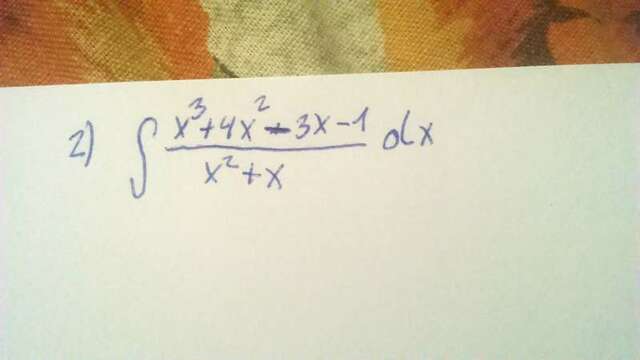 2) ∫ (x³+4x²-3x-1)/(x²+x) dx